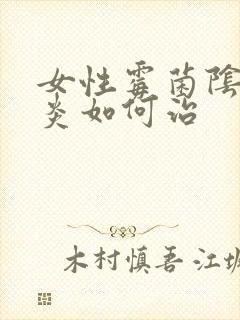 女性霉菌陰
炎如何治
木村慎吾 江坂